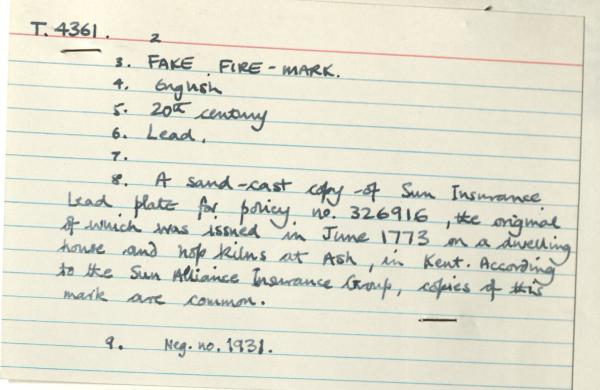 T. 4361. 2
3. FAKE FIRE-MARK.
4. English
5. 20th century
6. Lead.
7.
8. A sand-cast copy of Sun Insurance
Lead plate for policy no. 326916, the original
of which was issued in June 1773 on a dwelling
house and hop kilns at Ash, in Kent. According
to the Sun Alliance Insurance Group, copies of this
mark are common.
9. Neg. no. 1931.